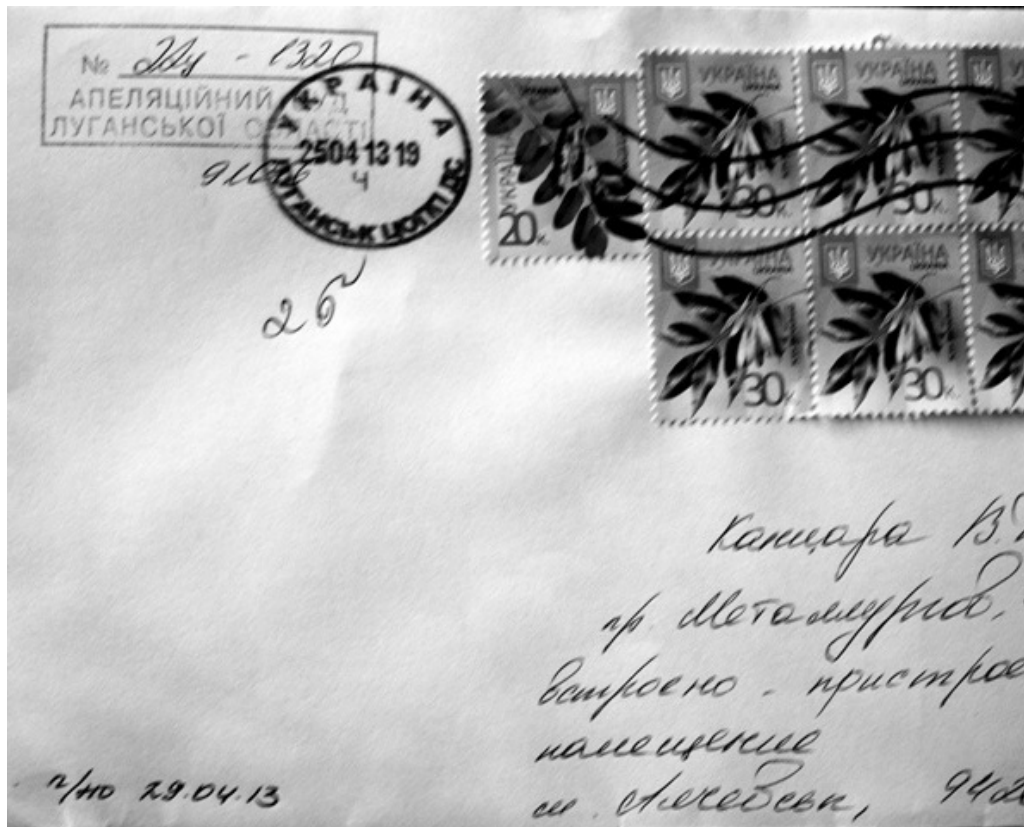 № 22ц - 1320
АПЕЛЯЦІЙНИЙ СУД
ЛУГАНСЬКОЇ ОБЛАСТІ
УКРАЇНА
250413 19
Ч
ЛУГАНСЬК ЦОПП ДС
26
УКРАЇНА
20к.
УКРАЇНА
30к.
УКРАЇНА
30к.
УКРАЇНА
30к.
УКРАЇНА
30к.
Канцара В.
пр. Металлургов,
встроено - пристрое
помещение
м. Алчевськ, 942
п/по 29.04.13